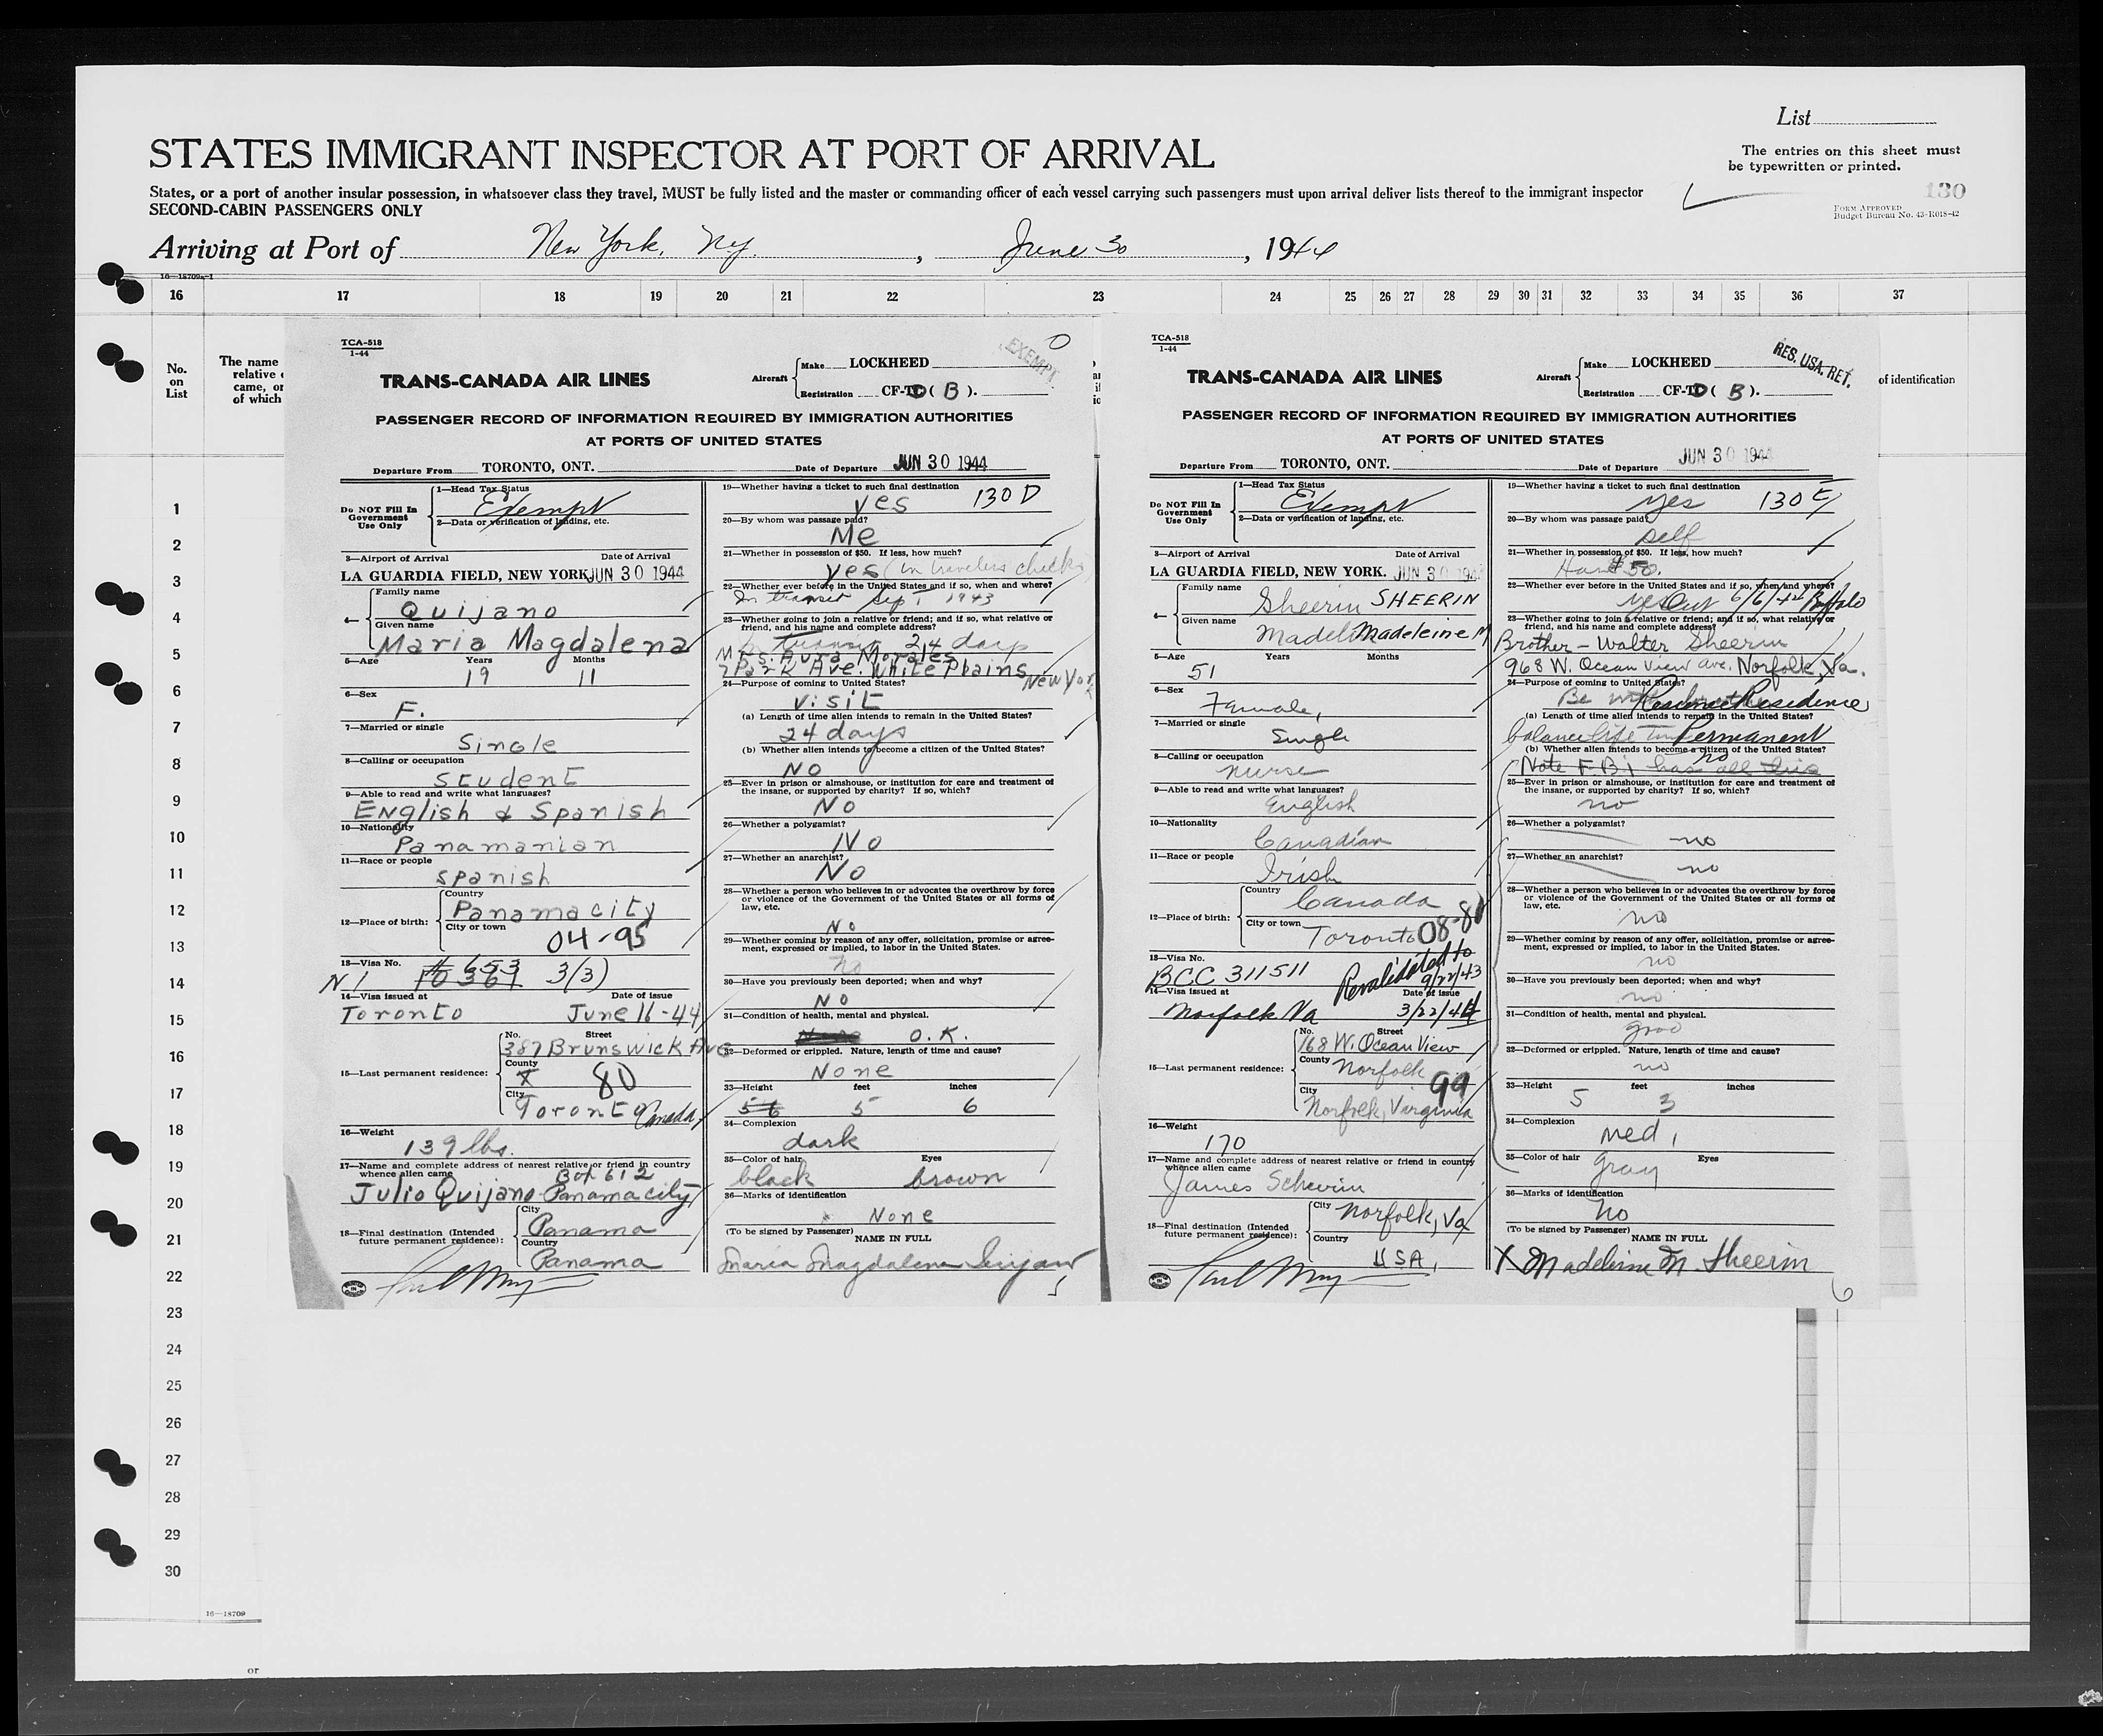 List
STATES IMMIGRANT INSPECTOR AT PORT OF ARRIVAL
The entries on this sheet must
be typewritten or printed.
States, or a port of another insular possession, in whatsoever class they travel, MUST be fully listed and the master or commanding officer of each vessel carrying such passengers must upon arrival deliver lists thereof to the immigrant inspector
130
SECOND-CABIN PASSENGERS ONLY
FORM APPROVED
Budget Bureau No. 43-R018-42
Arriving at Port of New York, Ny. , June 30 , 1944
16—18709a-1
16 17 18 19 20 21 22 23 24 25 26 27 28 29 30 31 32 33 34 35 36 37
No.
on
List
The name
relative
came, or
of which
of identification
1
2
3
4
5
6
7
8
9
10
11
12
13
14
15
16
17
18
19
20
21
22
23
24
25
26
27
28
29
30
16—18709
or
TCA-518
1-44
EXEMPT
0
TRANS-CANADA AIR LINES
Aircraft
Make LOCKHEED
Registration CF-TC ( B ).
PASSENGER RECORD OF INFORMATION REQUIRED BY IMMIGRATION AUTHORITIES
AT PORTS OF UNITED STATES
Departure From TORONTO, ONT. Date of Departure JUN 30 1944
Do NOT Fill In
Government
Use Only
1—Head Tax Status
Exempt
2—Data or verification of landing, etc.
3—Airport of Arrival Date of Arrival
LA GUARDIA FIELD, NEW YORK. JUN 30 1944
4—
Family name
Quijano
Given name
Maria Magdalena
5—Age Years Months
19 11
6—Sex
F.
7—Married or single
Single
8—Calling or occupation
Student
9—Able to read and write what languages?
English & Spanish
10—Nationality
Panamanian
11—Race or people
Spanish
12—Place of birth:
Country
Panama city
City or town
04-95
13—Visa No.
# 653
N1 10361 3/3)
14—Visa issued at Date of issue
Toronto June 16-44
15—Last permanent residence:
No. Street
387 Brunswick Ave
County
X 80
City
Toronto Canada
16—Weight
139 lbs.
17—Name and complete address of nearest relative or friend in country
whence alien came
Box 612
Julio Quijano Panama city
18—Final destination (Intended
future permanent residence):
City
Panama
Country
Panama
19—Whether having a ticket to such final destination
yes 130 D
20—By whom was passage paid?
Me
21—Whether in possession of $50. If less, how much?
yes (in travelers checks
22—Whether ever before in the United States and if so, when and where?
In transit Sept 1943
23—Whether going to join a relative or friend; and if so, what relative or
friend, and his name and complete address?
In transit 24 days
Mrs. Aura Morales
7 Park Ave. White Plains New York
24—Purpose of coming to United States?
visit
(a) Length of time alien intends to remain in the United States?
24 days
(b) Whether alien intends to become a citizen of the United States?
NO
25—Ever in prison or almshouse, or institution for care and treatment of
the insane, or supported by charity? If so, which?
No
26—Whether a polygamist?
No
27—Whether an anarchist?
No
28—Whether a person who believes in or advocates the overthrow by force
or violence of the Government of the United States or all forms of
law, etc.
No
29—Whether coming by reason of any offer, solicitation, promise or agree-
ment, expressed or implied, to labor in the United States.
no
30—Have you previously been deported; when and why?
No
31—Condition of health, mental and physical.
O.K.
32—Deformed or crippled. Nature, length of time and cause?
None
33—Height feet inches
56 5 6
34—Complexion
dark
35—Color of hair Eyes
black brown
36—Marks of identification
None
(To be signed by Passenger) NAME IN FULL
Maria Magdalena Quijano
5
TCA-518
1-44
RES. USA. RET.
TRANS-CANADA AIR LINES
Aircraft
Make LOCKHEED
Registration CF-TC ( B ).
PASSENGER RECORD OF INFORMATION REQUIRED BY IMMIGRATION AUTHORITIES
AT PORTS OF UNITED STATES
Departure From TORONTO, ONT. Date of Departure JUN 30 1944
Do NOT Fill In
Government
Use Only
1—Head Tax Status
Exempt
2—Data or verification of landing, etc.
3—Airport of Arrival Date of Arrival
LA GUARDIA FIELD, NEW YORK. JUN 30 1944
4—
Family name
Sheerin SHEERIN
Given name
Madel Madeleine M
5—Age Years Months
51
6—Sex
Female,
7—Married or single
Single
8—Calling or occupation
nurse
9—Able to read and write what languages?
English
10—Nationality
Canadian
11—Race or people
Irish
12—Place of birth:
Country
Canada
City or town
Toronto 08-80
13—Visa No.
BCC 311511 Revalidated to
9/22/43
14—Visa issued at Date of issue
Norfolk Va 3/22/44
15—Last permanent residence:
No. Street
168 W. Ocean View
County
Norfolk 99
City
Norfolk, Virginia
16—Weight
170
17—Name and complete address of nearest relative or friend in country
whence alien came
James Scheerin
18—Final destination (Intended
future permanent residence):
City
Norfolk, Va
Country
USA,
19—Whether having a ticket to such final destination
yes 130 E
20—By whom was passage paid?
self
21—Whether in possession of $50. If less, how much?
Have $50.
22—Whether ever before in the United States and if so, when and where?
yes Out 6/6/44 Buffalo
23—Whether going to join a relative or friend; and if so, what relative or
friend, and his name and complete address?
Brother - Walter Sheerin
968 W. Ocean View Ave. Norfolk, Va.
24—Purpose of coming to United States?
Be with Resume Residence
(a) Length of time alien intends to remain in the United States?
balance life time Permanent
(b) Whether alien intends to become a citizen of the United States?
no
Note F.B.i has all this
25—Ever in prison or almshouse, or institution for care and treatment of
the insane, or supported by charity? If so, which?
no
26—Whether a polygamist?
no
27—Whether an anarchist?
no
28—Whether a person who believes in or advocates the overthrow by force
or violence of the Government of the United States or all forms of
law, etc.
no
29—Whether coming by reason of any offer, solicitation, promise or agree-
ment, expressed or implied, to labor in the United States.
no
30—Have you previously been deported; when and why?
no
31—Condition of health, mental and physical.
good
32—Deformed or crippled. Nature, length of time and cause?
no
33—Height feet inches
5 3
34—Complexion
med,
35—Color of hair Eyes
gray
36—Marks of identification
no
(To be signed by Passenger) NAME IN FULL
X Madeleine M. Sheerin
6